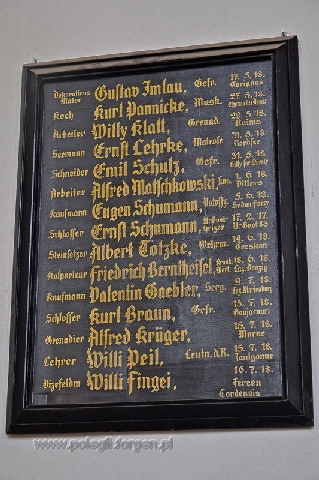 Dekorations Maler Gustav Imlau, Gefr. 17. 5. 18.
Koch Kurt Pannicke, Musk. 27. 5. 18.
Arbeiter Willy Klatt, Grenad. 29. 5. 18. Reims
Seemann Ernst Lehrke, Matrose 31. 5. 18. Nordsee
Schneider Emil Schulz, Gefr. 31. 5. 18.
Arbeiter Alfred Matschkowski, 1. 6. 18.
Kaufmann Eugen Schumann, 5. 6. 18.
Schlosser Ernst Schumann, 17. 2. 17.
Steinsetzer Albert Totzke, Wehrm. 14. 6. 18.
Friedrich Berntheisel, 18. 6. 18.
Kaufmann Valentin Gaebler, Serg. 9. 7. 18.
Schlosser Kurt Braun, Gefr. 15. 7. 18.
Grenadier Alfred Krüger, 15. 7. 18. Marne
Lehrer Willi Peil, Leutn. d.R. 15. 7. 18.
Vizefeldw. Willi Fingei, 16. 7. 18.
www.polegli.forgen.pl